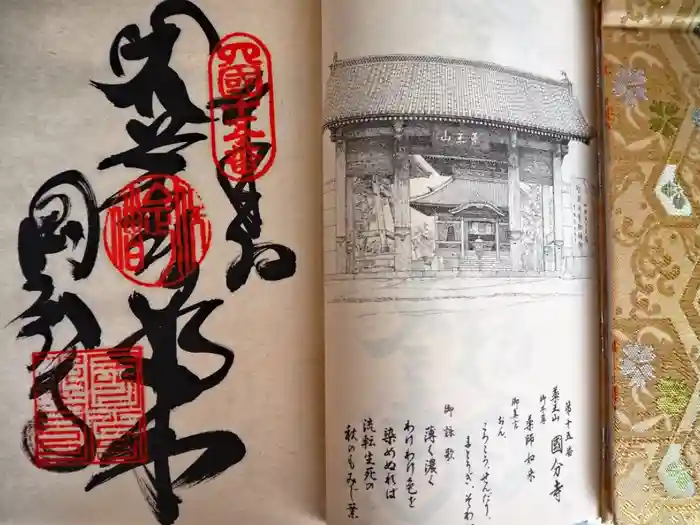 四國十五番
奉納
薬師如来
国分寺
薬王山
第十五番
薬王山 國分寺
御本尊
薬師如来
御真言
おん、
ころころ、せんだり、
まとうぎ、そわ
御詠歌
薄く濃く
わけわけ色を
染めぬれば
流転生死の
秋のもみじ葉